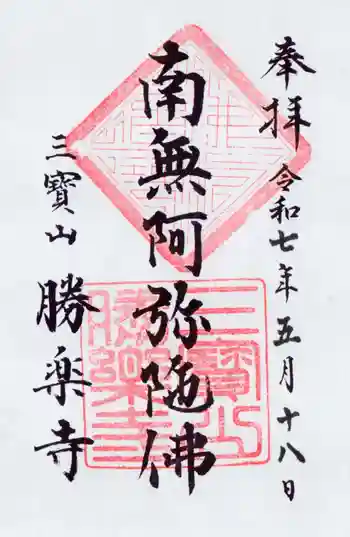 奉拝 令和七年五月十八日
南無阿弥陀佛
三寳山 勝楽寺
三寳山勝樂寺